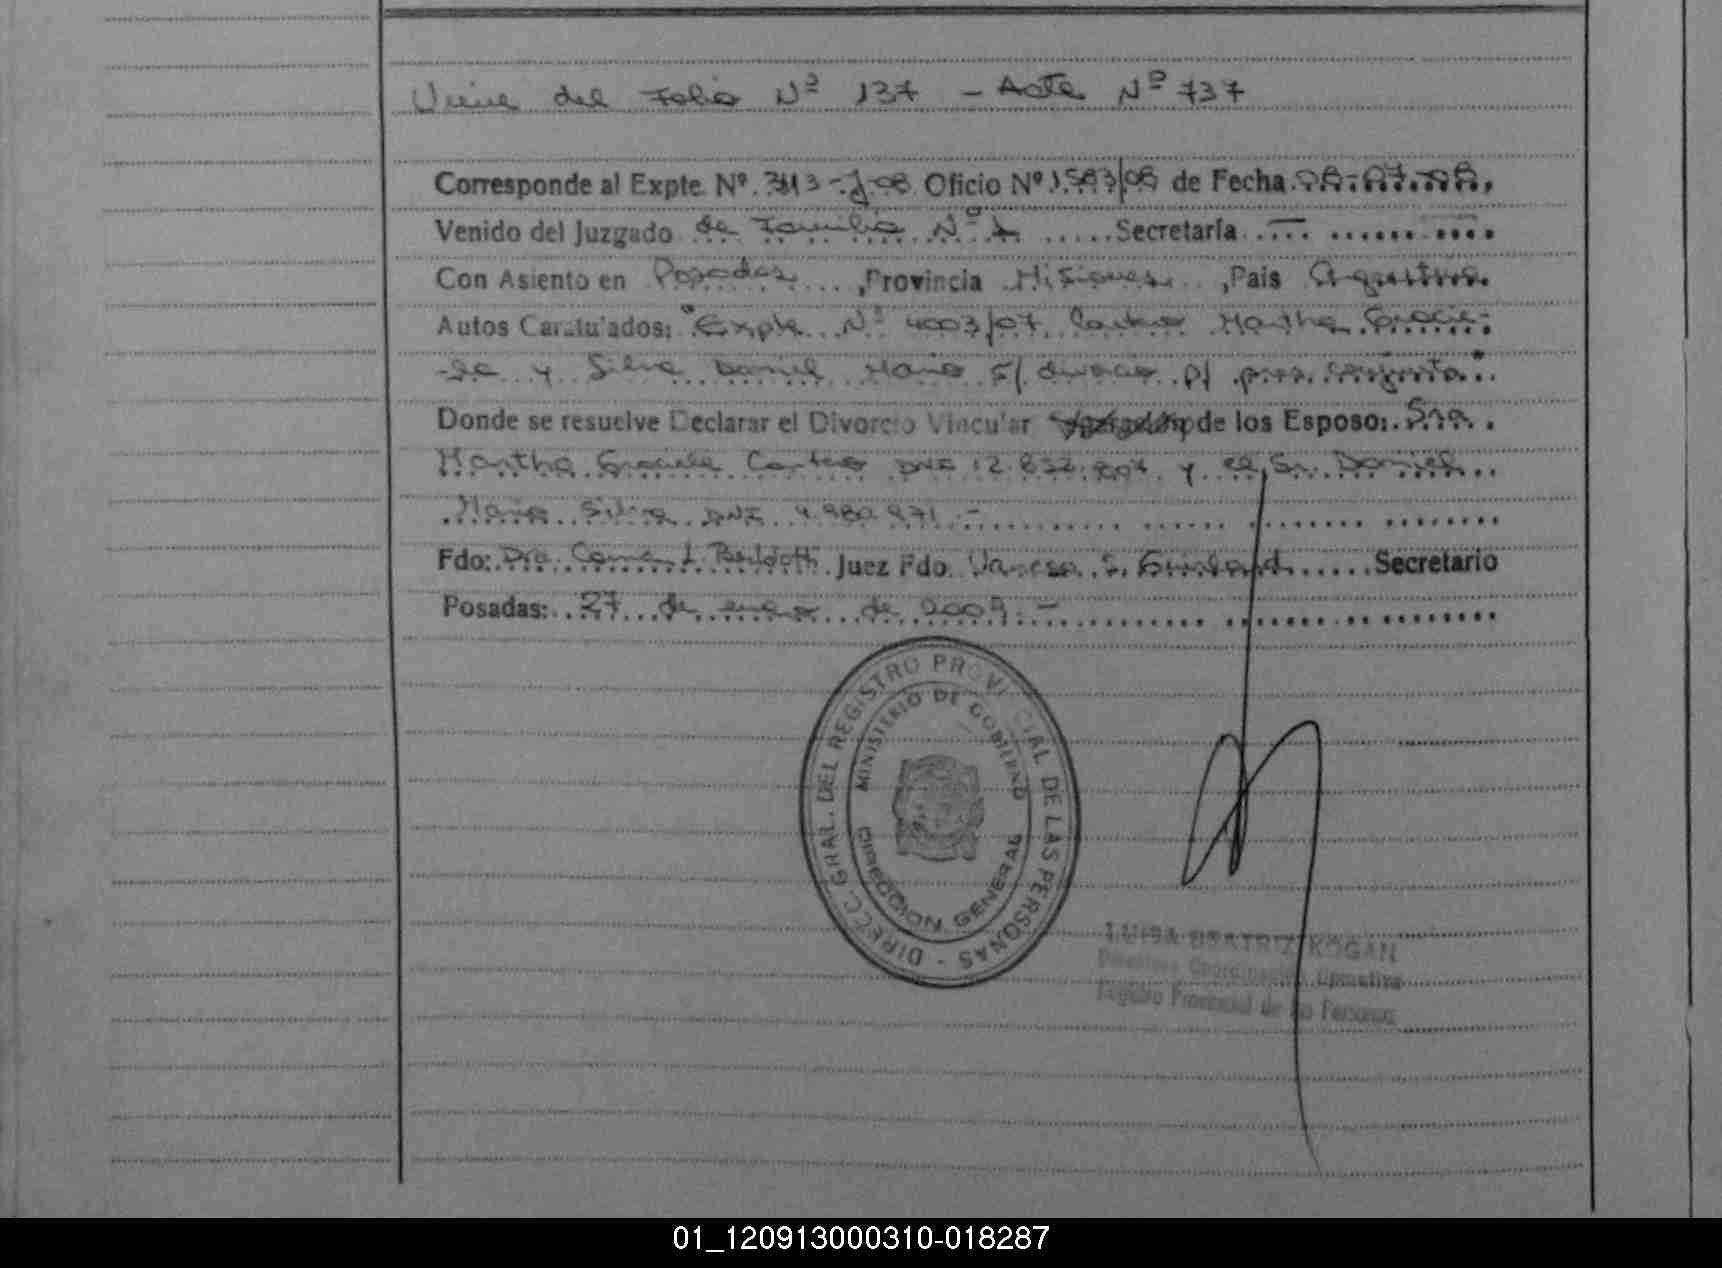 Viene del Folio Nº 137 - Acta Nº 737
Corresponde al Expte. Nº 3113-J-08 Oficio Nº 1583/08 de Fecha
Venido del Juzgado de Familia Nº 1 Secretaría
Con Asiento en Posadas, Provincia Misiones, País Argentina
Autos Caratulados: "Expte Nº 4003/07 Martha Gracie-
-la y Silva Daniel Mario s/ divorcio p/ pres. conjunta"
Donde se resuelve Declarar el Divorcio Vincular de los Esposo: Sra.
Martha Graciela DNI 12.852.807 y el Sr. Daniel
Mario Silva DNI 4.980.971.-
Fdo: Dra. L. Juez Fdo. Vanesa S. Secretario
Posadas: 27 de enero de 2009.-
DIRECC. GRAL. DEL REGISTRO PROVINCIAL DE LAS PERSONAS -
MINISTERIO DE GOBIERNO
DIRECCION GENERAL
LUISA BEATRIZ KOGAN
Directora Coordinación Operativa
Registro Provincial de las Personas
01_120913000310-018287